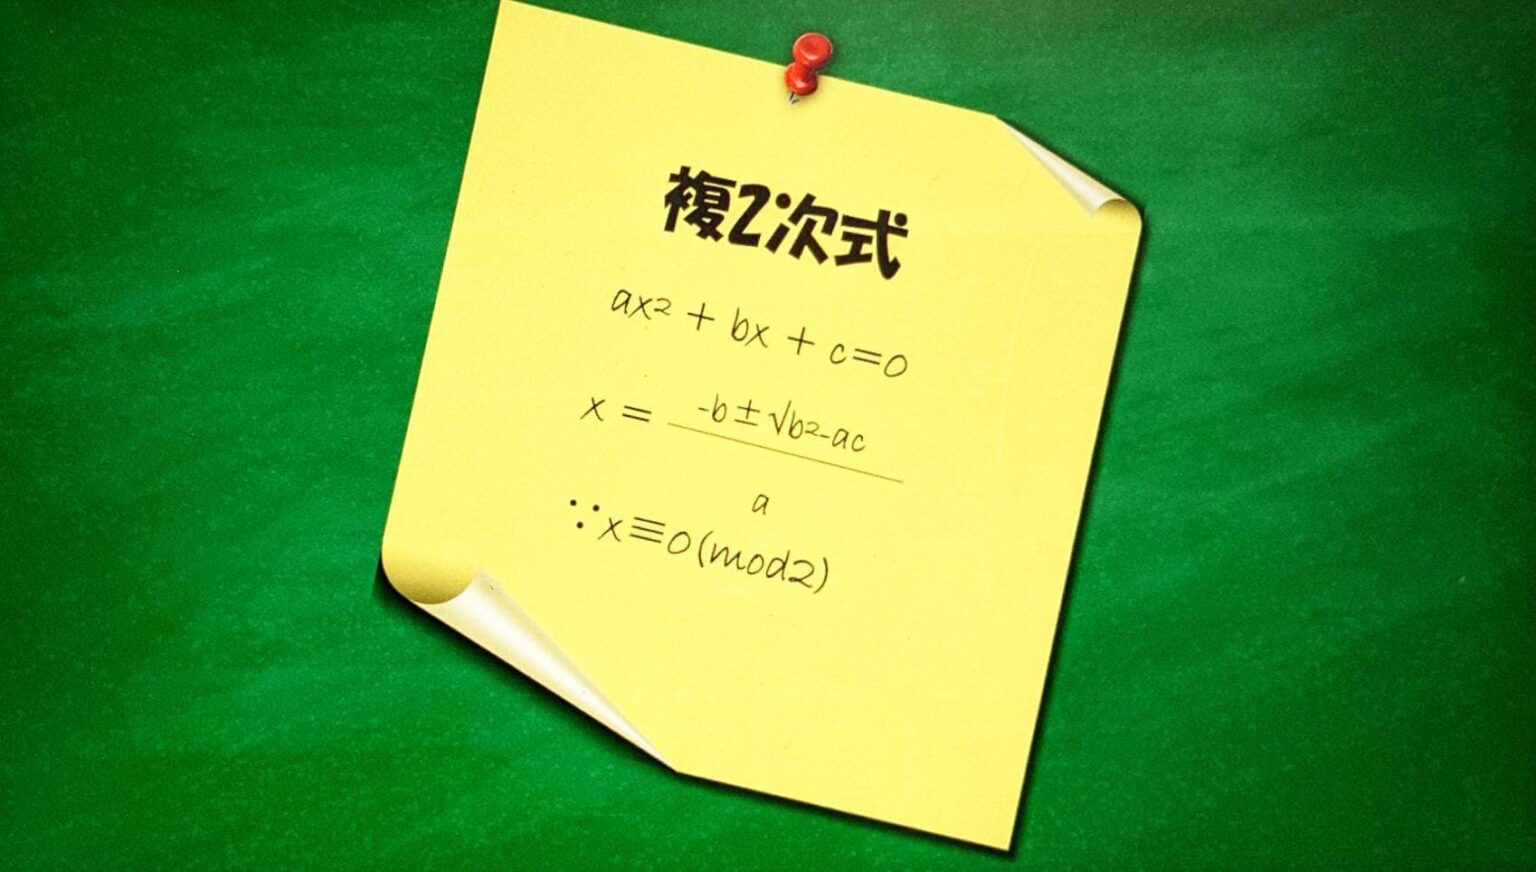 複2次式
ax² + bx + c=0
x = -b±√b²-ac / a
∵x≡0(mod2)